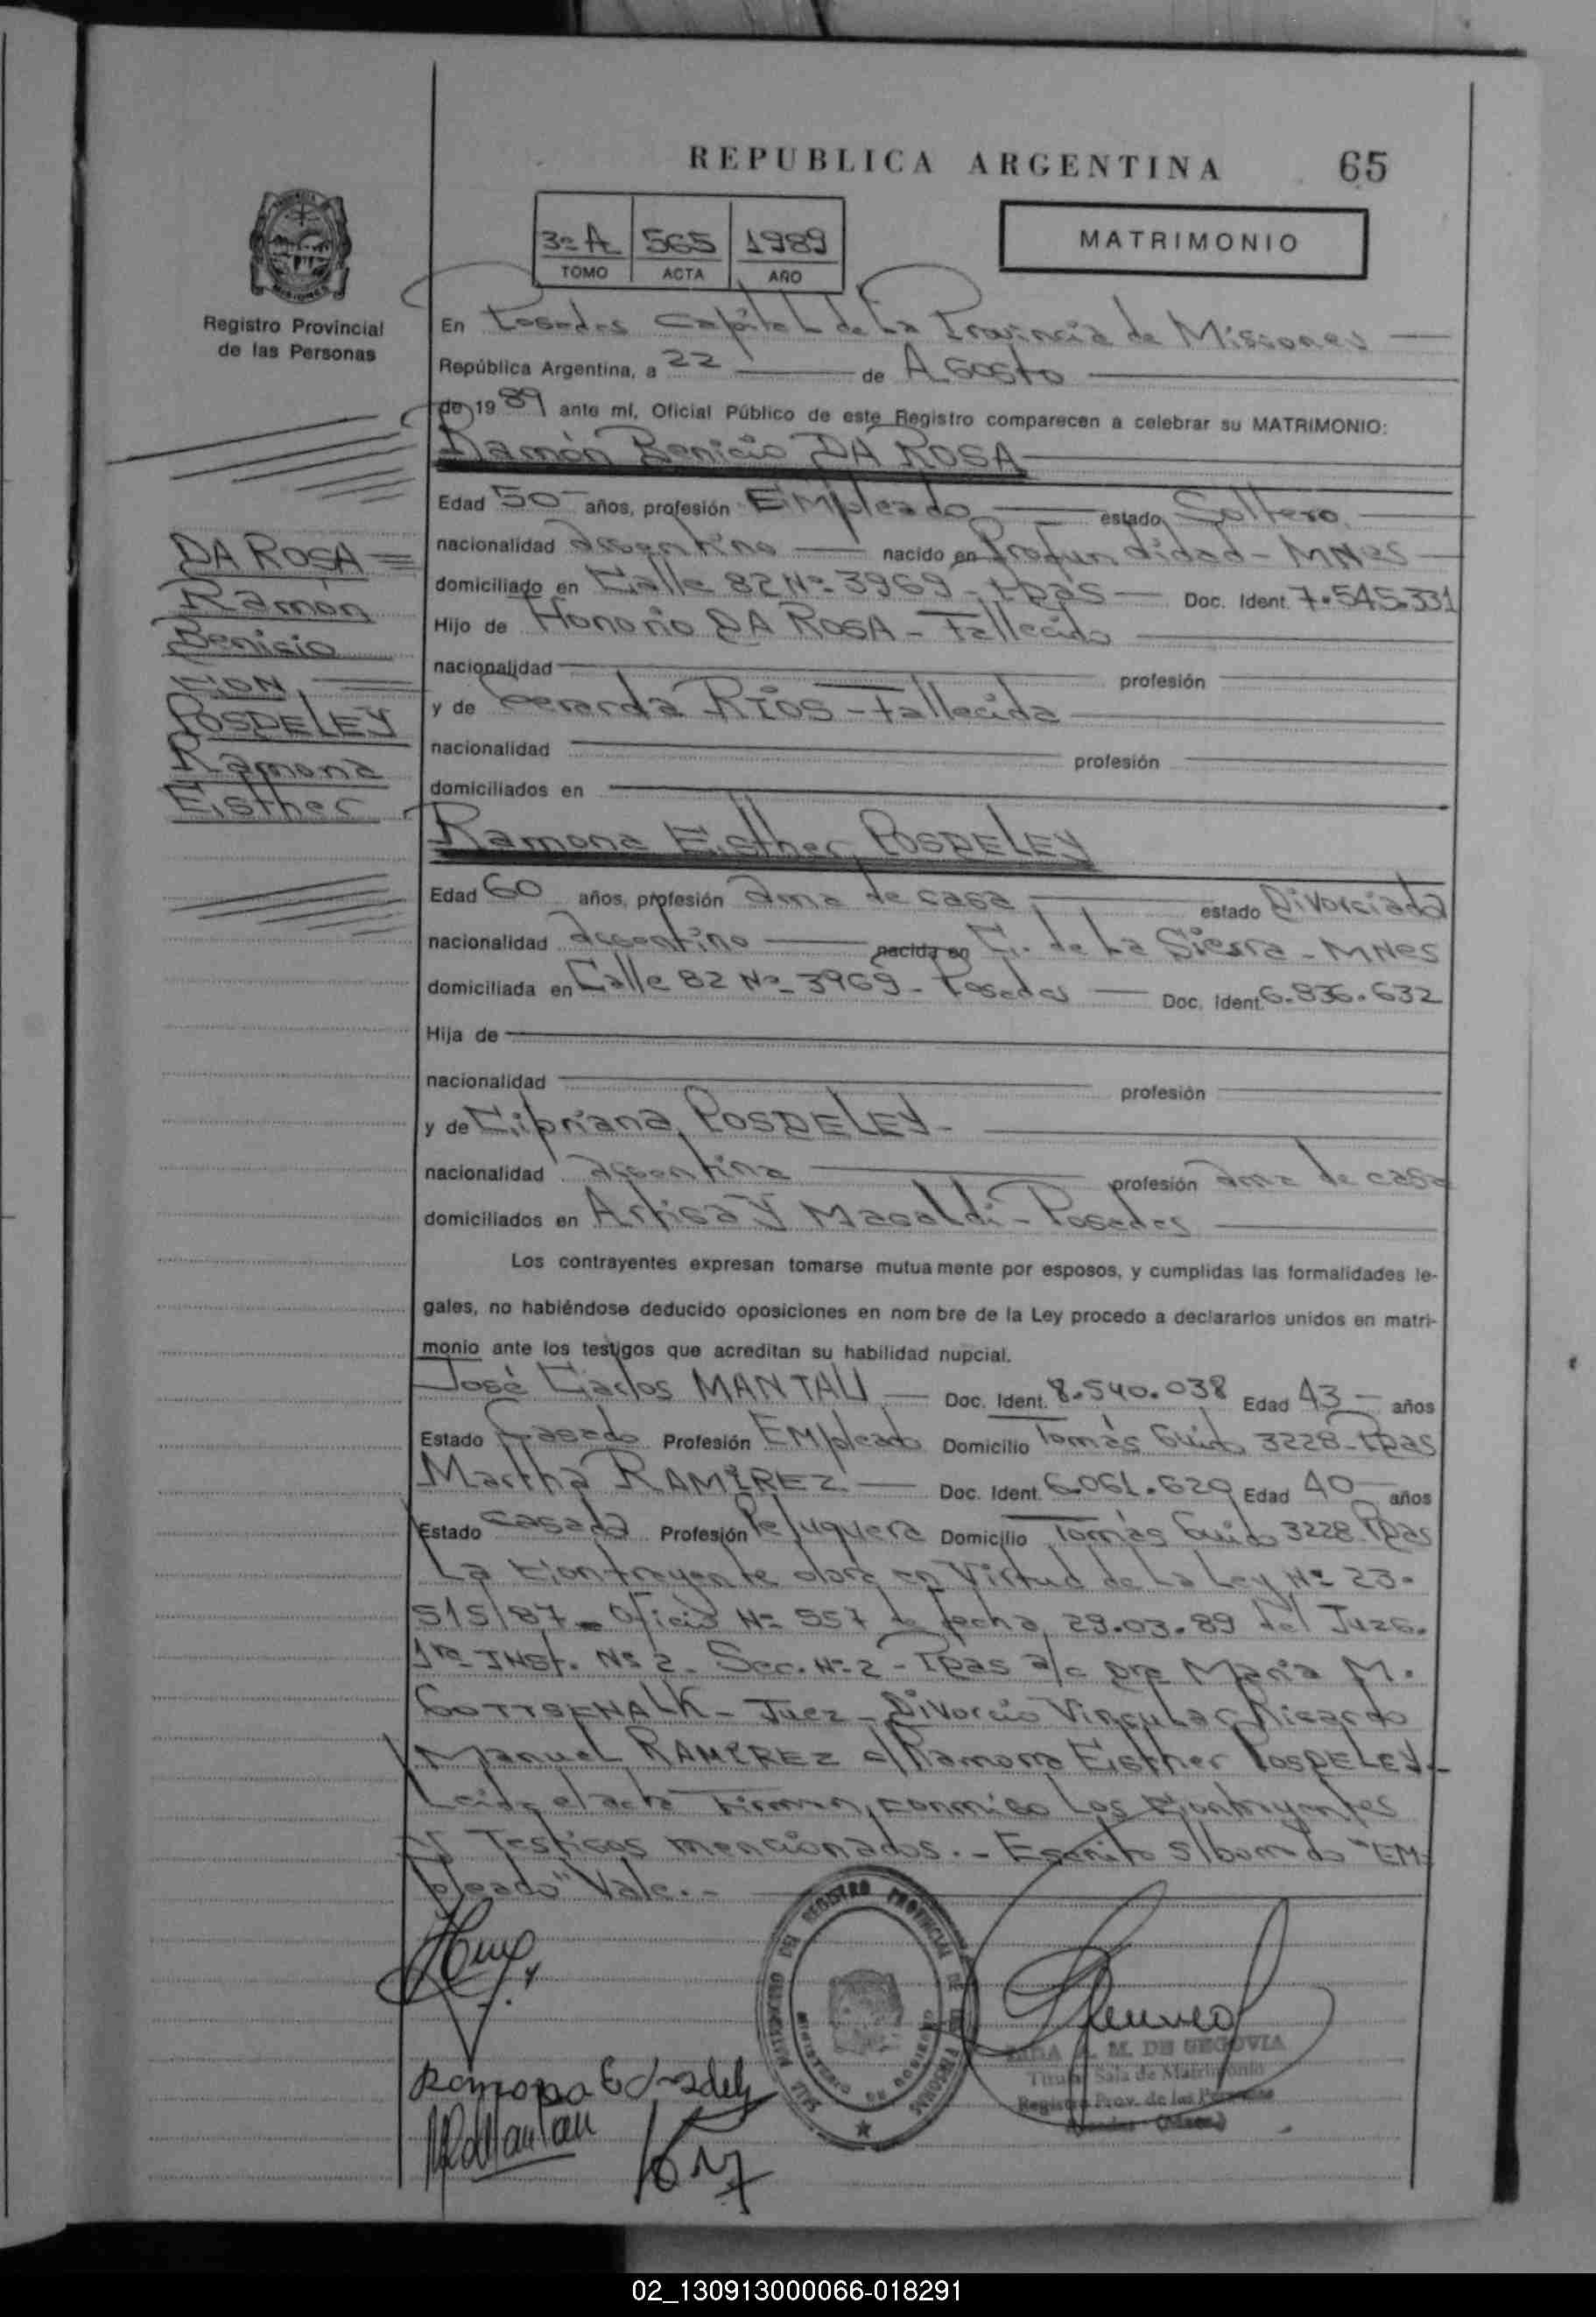 REPUBLICA ARGENTINA 65
3º A 565 1989
TOMO ACTA AÑO
MATRIMONIO
MISIONES
Registro Provincial
de las Personas
En Posadas Capital de La Provincia de Misiones
República Argentina, a 22 de Agosto
de 1989 ante mí, Oficial Público de este Registro comparecen a celebrar su MATRIMONIO:
Ramón Benicio DA ROSA
Edad 50 años, profesión Empleado estado Soltero
nacionalidad argentino nacido en Profundidad - MNes
domiciliado en Calle 82 Nº 3969 - Pdas Doc. Ident. 7.545.331
Hijo de Honorio DA ROSA - Fallecido
nacionalidad profesión
y de Gerarda RIOS - Fallecida
nacionalidad profesión
domiciliados en
DA ROSA
Ramón
Benicio
CON
POSDELEY
Ramona
Esther
Ramona Esther POSDELEY
Edad 60 años, profesión ama de casa estado Divorciada
nacionalidad argentino nacida en C. de La Sierra - MNes
domiciliada en Calle 82 Nº 3969 - Posadas Doc. Ident. 6.836.632
Hija de
nacionalidad profesión
y de Cipriana POSDELEY -
nacionalidad argentina profesión ama de casa
domiciliados en Artiga y Magaldi - Posadas
Los contrayentes expresan tomarse mutuamente por esposos, y cumplidas las formalidades le-
gales, no habiéndose deducido oposiciones en nombre de la Ley procedo a declararlos unidos en matri-
monio ante los testigos que acreditan su habilidad nupcial.
José Carlos MANTAU Doc. Ident. 8.540.038 Edad 43 años
Estado Casado Profesión Empleado Domicilio Tomás Guido 3228 - Pdas
Martha RAMIREZ Doc. Ident. 6.061.629 Edad 40 años
Estado casada Profesión Peluquera Domicilio Tomás Guido 3228 Pdas
La Contrayente obra en Virtud de La Ley Nº 23.
515/87 - Oficio Nº 557 de fecha 29.03.89 del Juzg.
1ra INst. Nº 2 - Sec. Nº 2 - Pdas a/c Dra María M.
Juez - Divorcio Vincular Ricardo
Manuel RAMIREZ c/ Ramona Esther POSDELEY -
Leida el acta Firman conmigo Los Contrayentes
y Testigos mencionados. - Escrito s/borrado "EM-
pleado" Vale. -
A. M. DE SEGOVIA
Titular Sala de Matrimonio
Registro Prov. de las Personas
Posadas - (Mnes.)
02_130913000066-018291